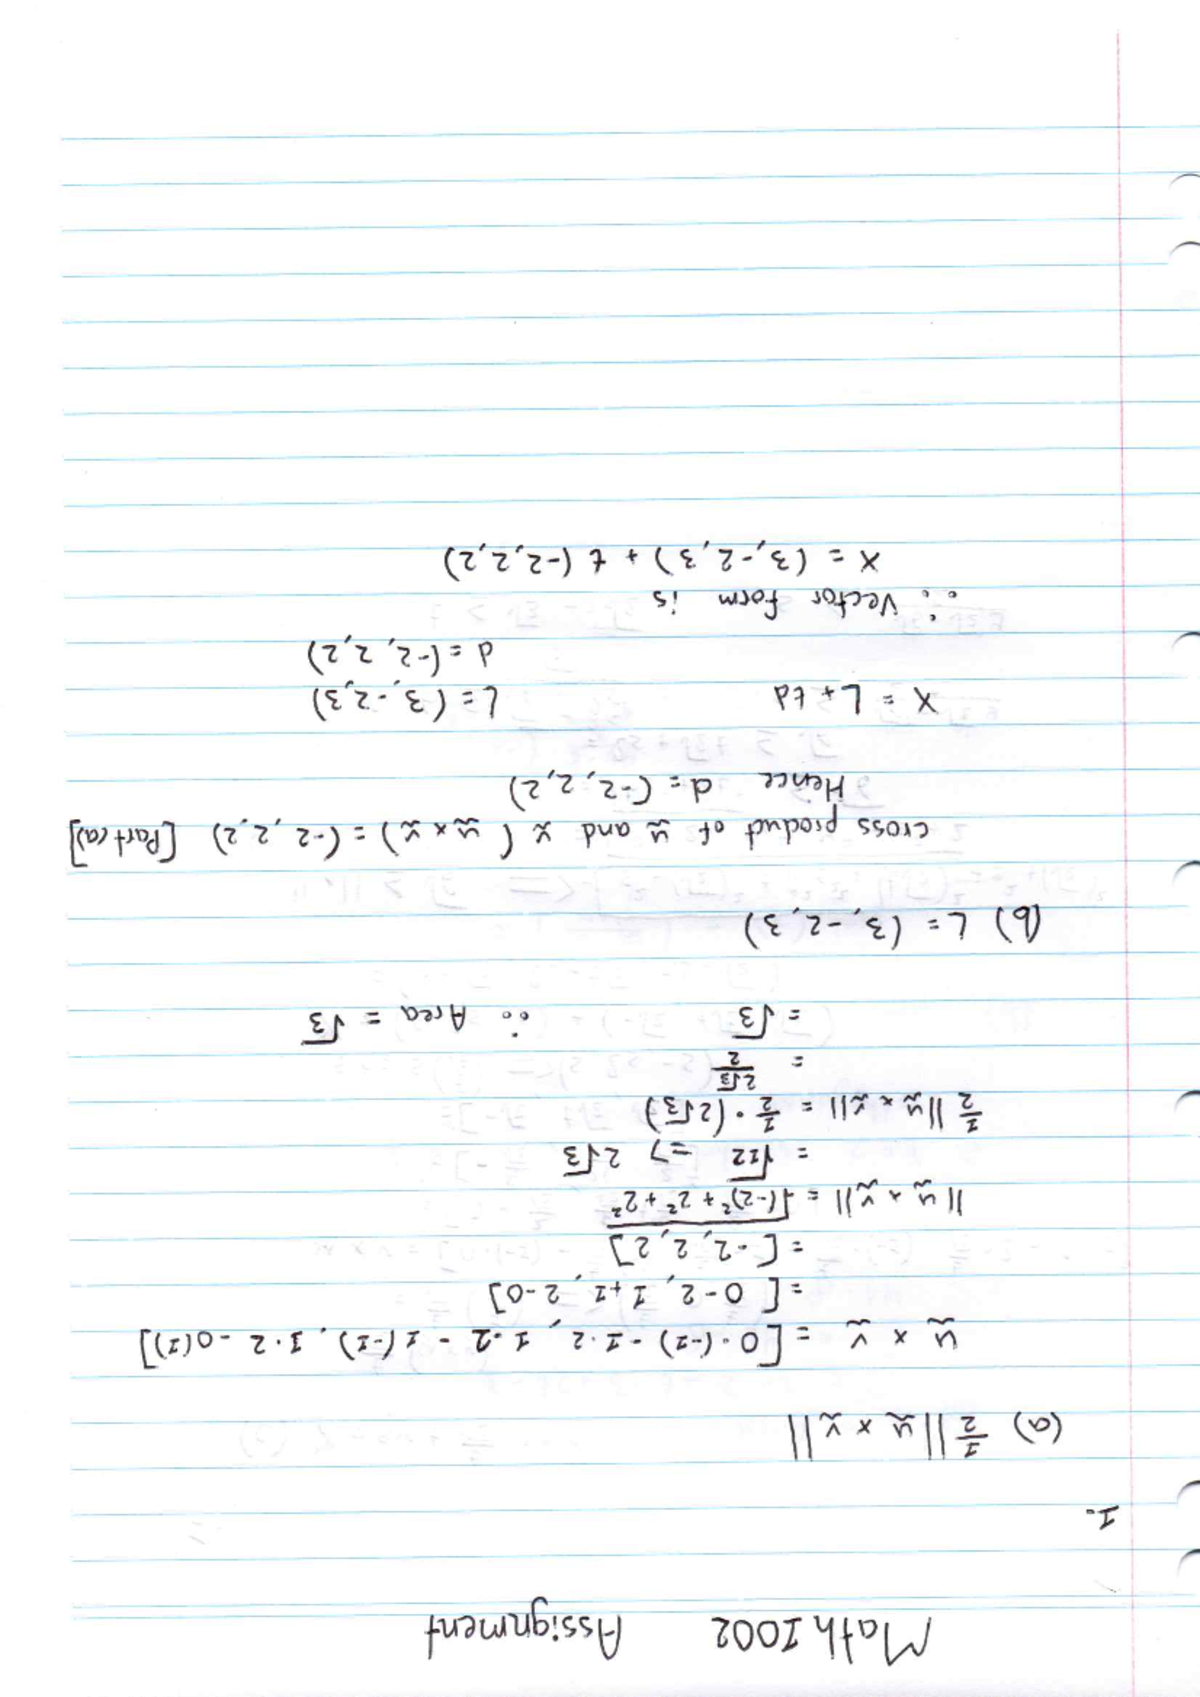 Math 1002 Assignment
1.
(a) 1/2 ||u × v||
u × v = [0·(-1) - 1·2, 1·2 - 1(-1), 1·2 - 0(1)]
= [0-2, 1+1, 2-0]
= [-2, 2, 2]
||u × v|| = √((-2)² + 2² + 2²)
= √12 => 2√3
1/2 ||u × v|| = 1/2 · (2√3)
= 2√3/2
= √3 ∴ Area = √3
(b) L = (3, -2, 3)
cross product of u and v (u × v) = (-2, 2, 2) [Part (a)]
Hence d = (-2, 2, 2)
X = L + td L = (3, -2, 3)
d = (-2, 2, 2)
∴ Vector form is
X = (3, -2, 3) + t (-2, 2, 2)